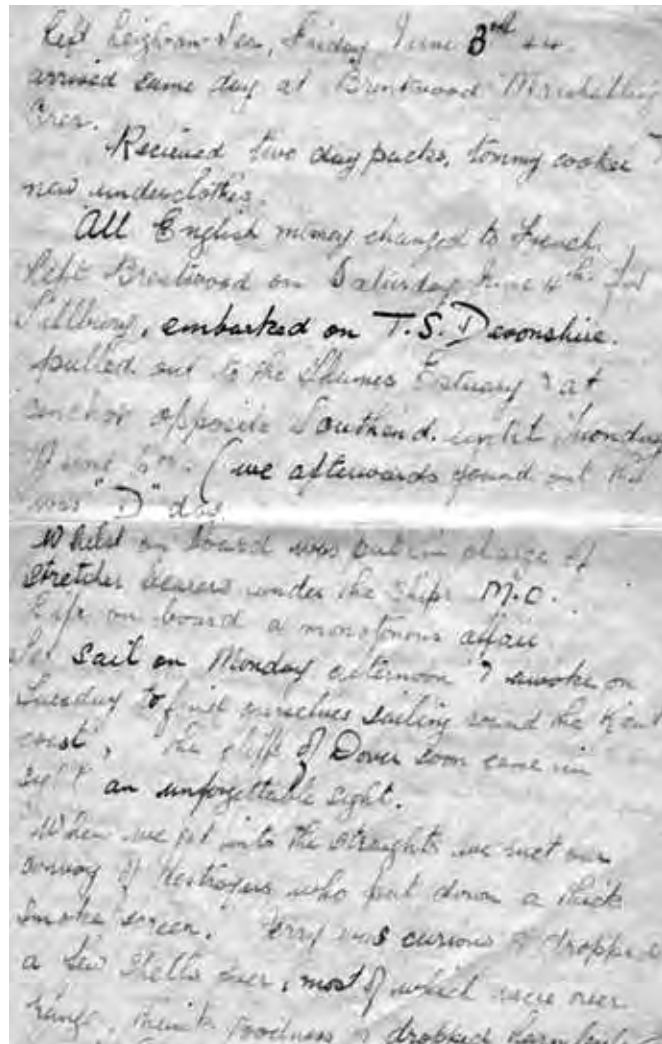 Left Leigh-on-Sea, Friday June 3rd 44.
arrived same day at Brentwood Marshalling
Area.
Recieved two day packs, tommy cooker
new underclothes.
All English money changed to French.
Left Brentwood on Saturday June 4th for
Tillbury, embarked on T.S. Devonshire.
pulled out to the Thames Estuary & at
anchor opposite Southend. until Monday
June (we afterwards found out this
was "D" day
Whilst on board was put in charge of
stretcher bearers under the ships M.O.
Life on board a monotonous affair
Set sail on Monday afternoon & awoke on
Tuesday to find ourselves sailing round the Kent
coast, the cliffs of Dover soon came in
sight an unforgettable sight.
When we got into the straights we met our
convoy of destroyers who put down a thick
smoke screen. Jerry was curious & dropped
a few shells over, most of which were over
range, thank goodness & dropped harmlessly